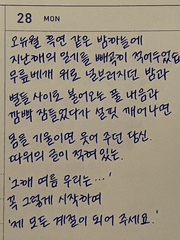 28 MON
오뉴월 흑연 같은 밤하늘에
지난해의 일기를 빼곡히 적어두었습
무릎베개 위로 널브러지던 밤과
별들 사이로 불어오는 풀 내음과
깜빡 잠들었다가 설핏 깨어나면
몸을 기울이면 웃어 주던 당신.
따위의 글이 적혀 있는.
'그해 여름 우리는…'
꼭 그렇게 시작하여
'제 모든 계절이 되어 주세요.'